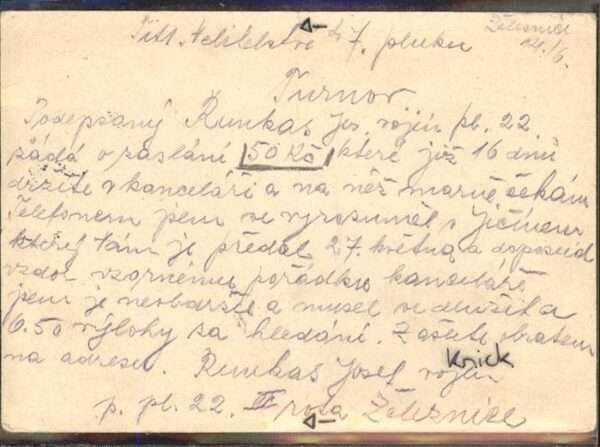 Železnice
14./6.
Titl. Velitelství 7. pluku
Turnov
Podepsaný Runkas Jos. vojín p.pl. 22
žádá o zaslání 50 Kč které již 16 dnů
držíte v kanceláři a na něž marně čekám
Telefonem jsem se vyrozuměl s Jičínem
který tam je předal 27. května a doposud
vzdor vzornému pořádku kanceláře
jsem je neobdržel a musel se
6.50 výlohy za hledání. Zašlete obratem
na adresu. Runkas Josef vojín
Knick
p. pl. 22. III rota Železnice